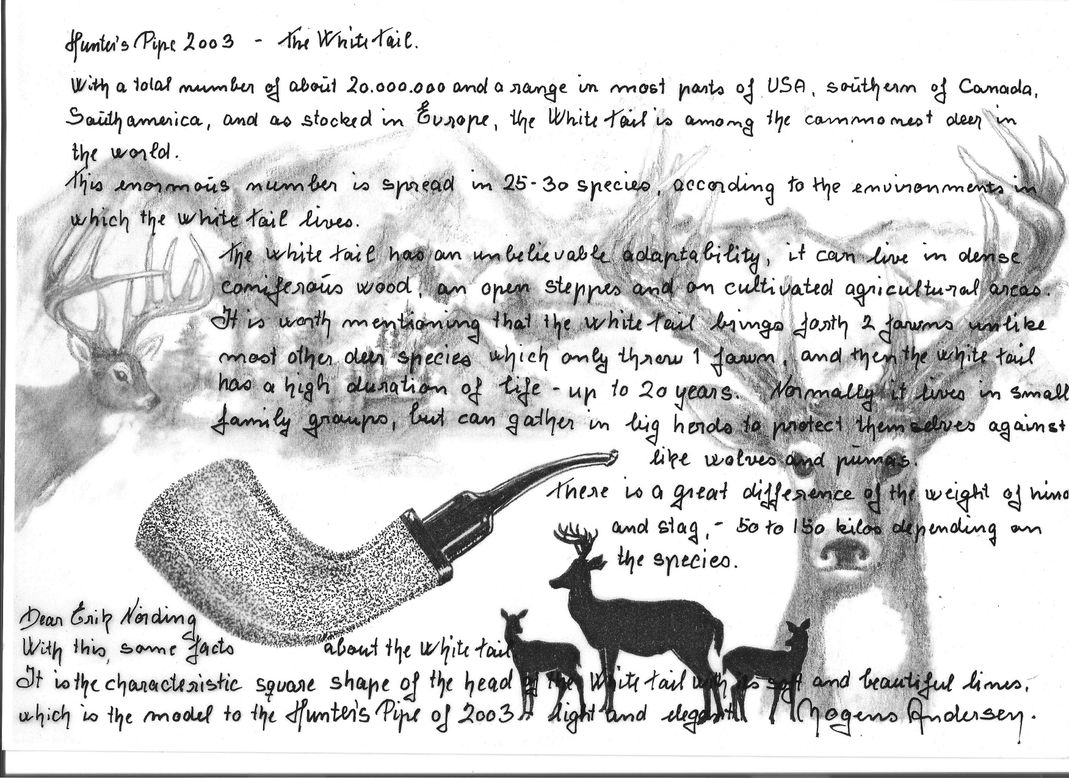 Hunter's Pipe 2003 - The White tail.
With a total number of about 20.000.000 and a range in most parts of USA, southern of Canada,
Southamerica, and as stocked in Europe, the White tail is among the commonest deer in
the world.
This enormous number is spread in 25-30 species, according to the environments in
which the white tail lives.
The white tail has an unbelievable adaptability, it can live in dense
coniferous wood, an open steppes and on cultivated agricultural areas.
It is worth mentioning that the white tail brings forth 2 fawns unlike
most other deer species which only throw 1 fawn, and then the white tail
has a high duration of life - up to 20 years. Normally it lives in small
family groups, but can gather in big herds to protect themselves against
like wolves and pumas.
There is a great difference of the weight of hind
and stag, - 50 to 150 kilos depending on
the species.
Dear Erik Nörding
With this, some facts about the white tail
It is the characteristic square shape of the head of the White tail with its soft and beautiful lines,
which is the model to the Hunter's Pipe of 2003 - light and elegant. Mogens Andersen.